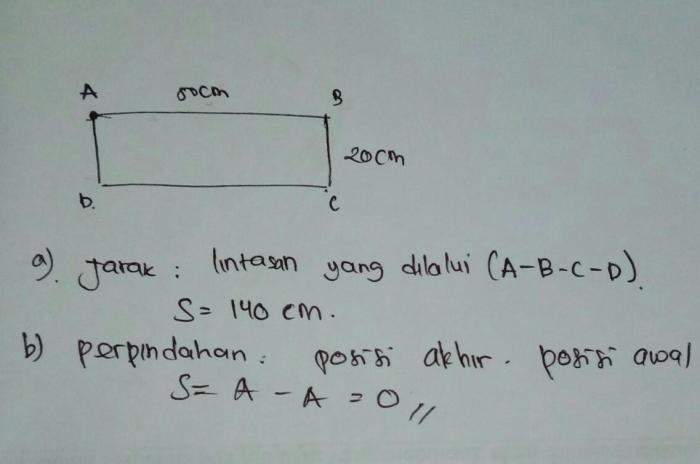 A 50cm B
20cm
D. C
a). Jarak : lintasan yang dilalui (A-B-C-D).
S= 140 cm.
b) perpindahan : posisi akhir - posisi awal
S= A - A = 0 //